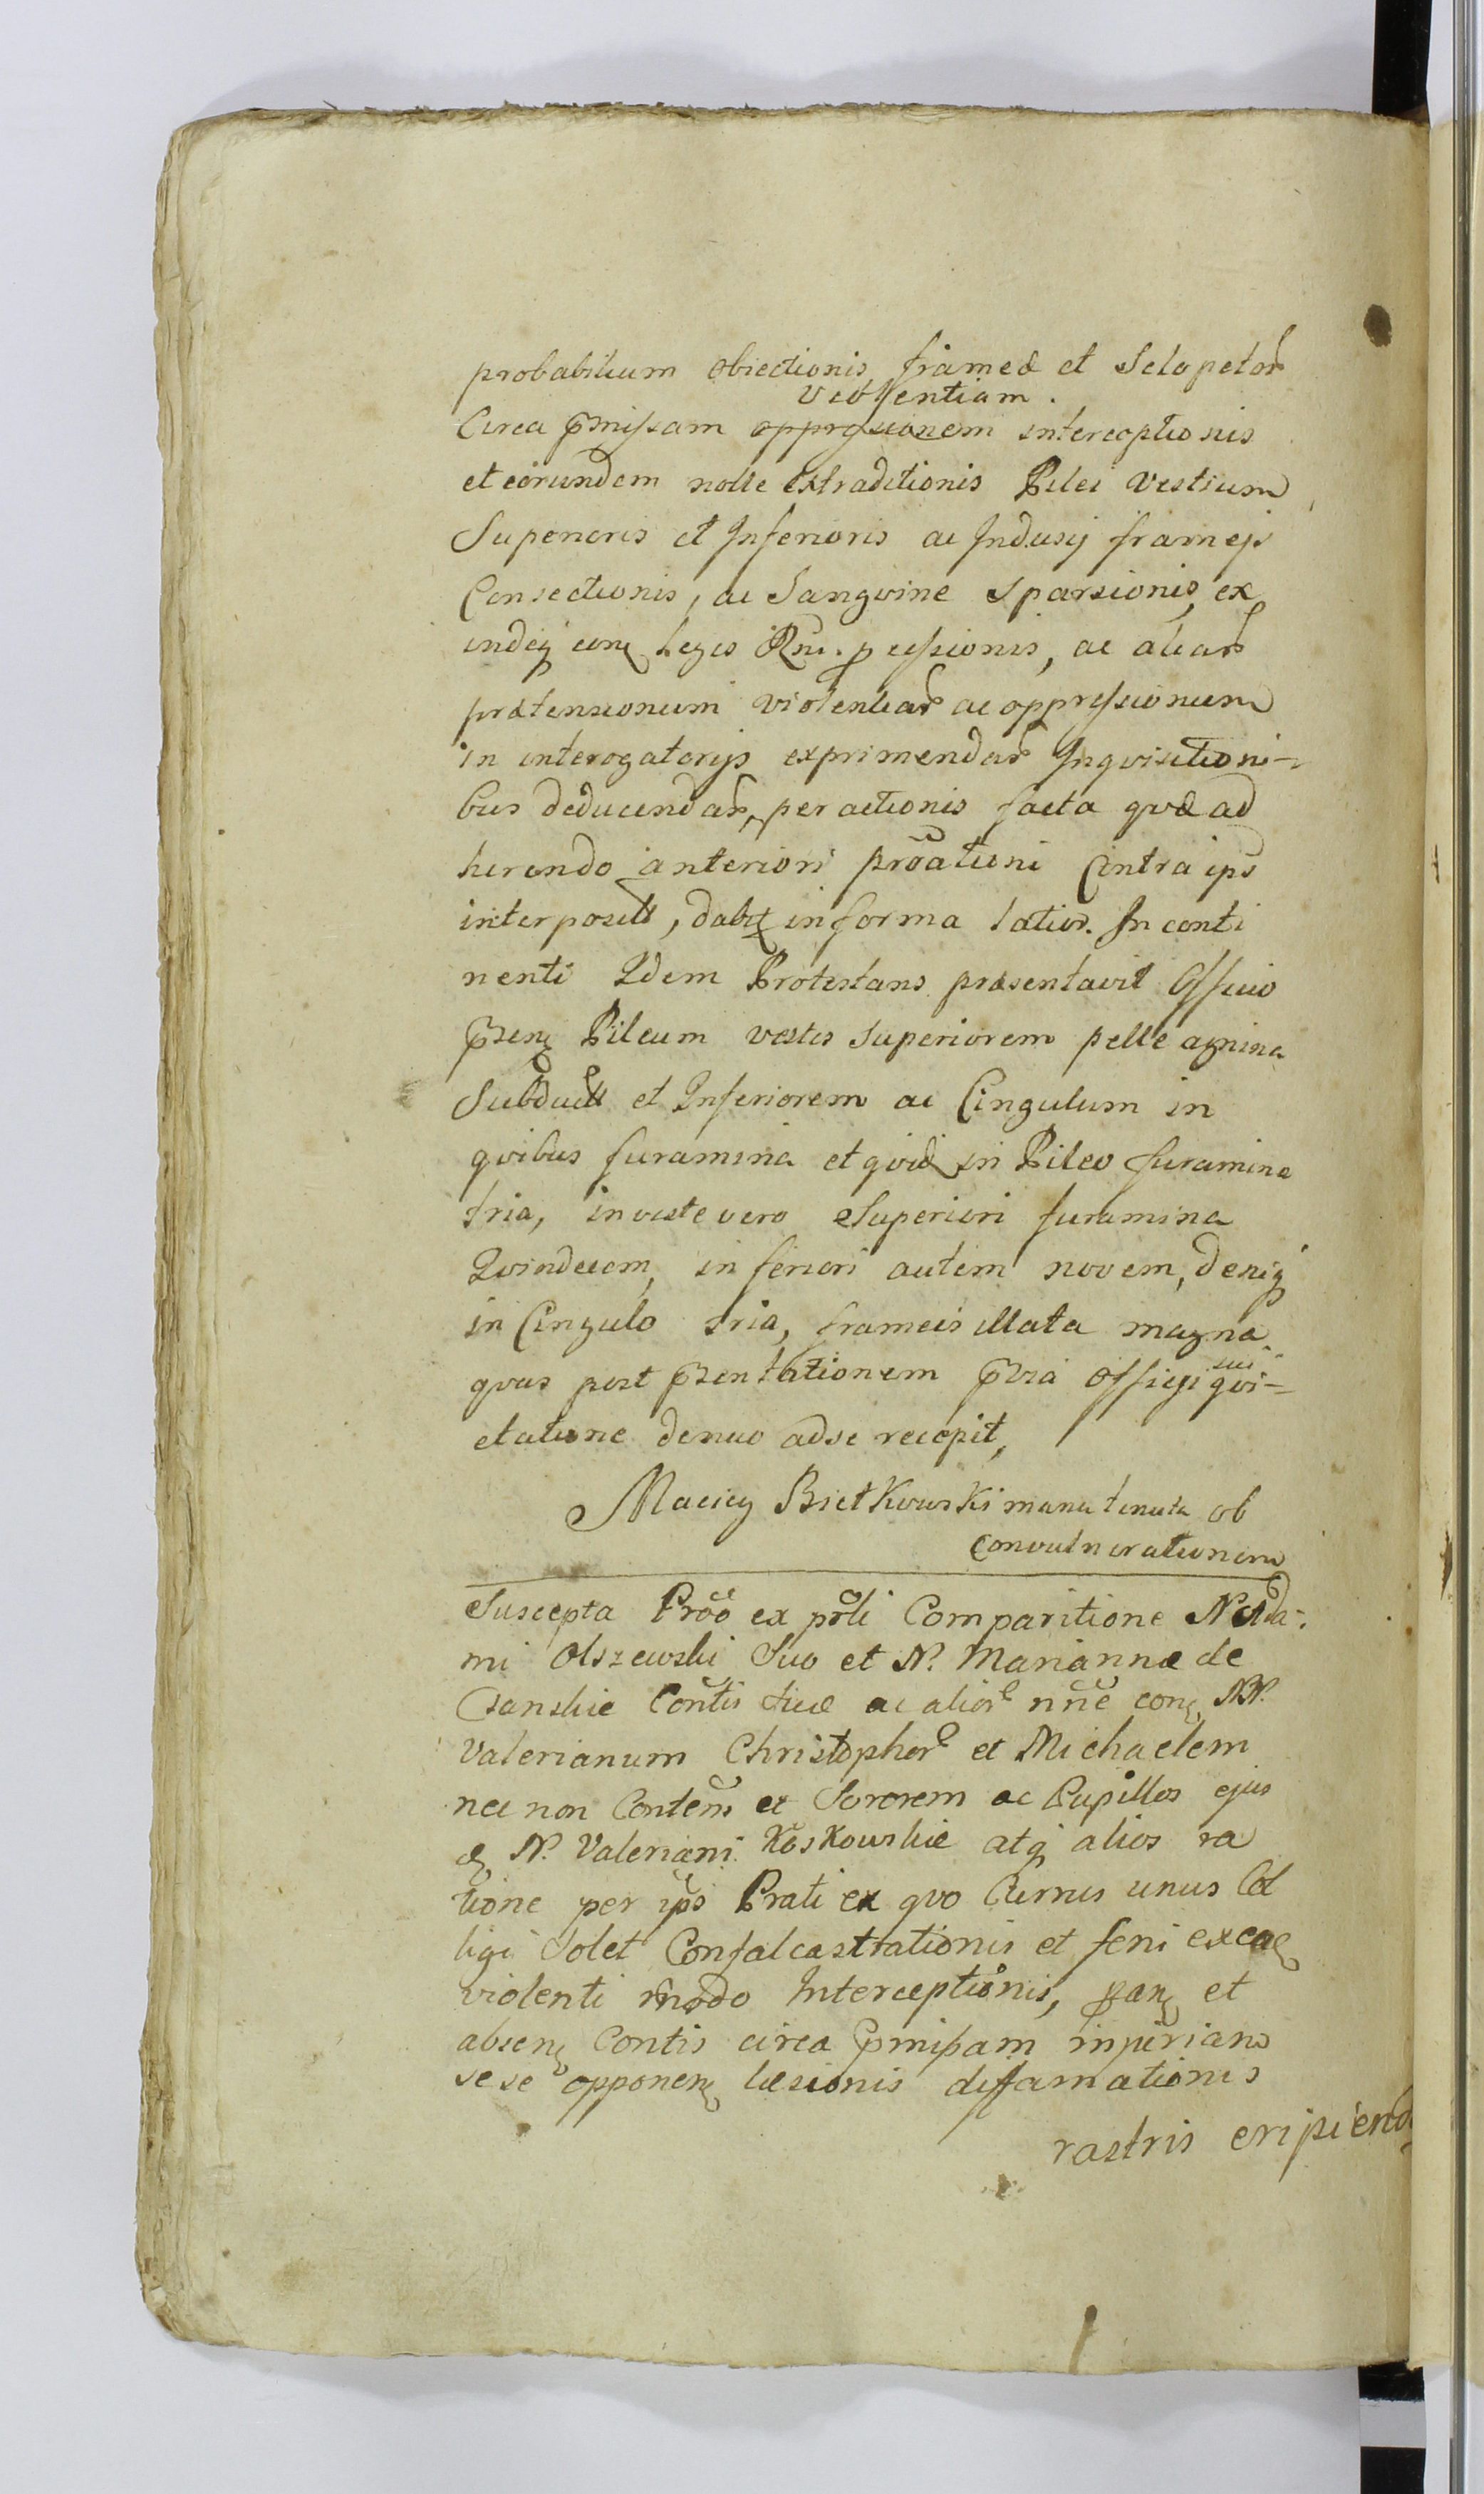 probabilium obiectionis frameæ et Sclopetor
violentiam.
Circa pmissam oppressionem interceptionis
et eorundem nolle extraditionis Pilei vestium
Superioris et Inferioris ac Indusij frameis
Consectionis, ac Sanguine Sparsionis, ex
indeq conq Legis Rni. pcessionis, ac aliar
prætensionum violentiar ac oppressionum
in interogatorijs exprimendar Inqvisitioni-
bus deducendar, per actionis facta qvæ ad
herendo anteriori proationi Contra ips
interposit, dabit in forma latior. In conti
nenti Idem Protestans præsentavit Officio
przenq Pileum vestes Superiorem pelle agnina
Subduct et Inferiorem ac Cingulum in
qvibus furamina et qvid in Pileo furamina
tria, in veste vero Superiori furamina
Qvindecem, inferiori autem novem, deniq
in Cingulo tria, frameis illata magna
sui
qvas post przentationem przia Officij qvi-
etatione denuo ad se recepit,
Maciey Bietkowski manu tenuta ob
convulnerationem
Suscepta Proo ex prli Comparitione N. Ada-
mi Olszewski Suo et N. Mariannæ de
Czanskie Contis suæ ac alior nne conq NN.
Valerianum Christophor et Michaelem
nec non Contem et Sororem ac Pupillos ejus
dq N. Valeriani Koskowskie atq alios ra
tione per ips Prati ex qvo Currus unus Col
ligi Solet Confalcastrationis et feni excaq
violenti modo Interceptionis, panq et
absenq Contis circa pmissam injuriam
sese opponenq læsionis diffamationis
rastris eripiend